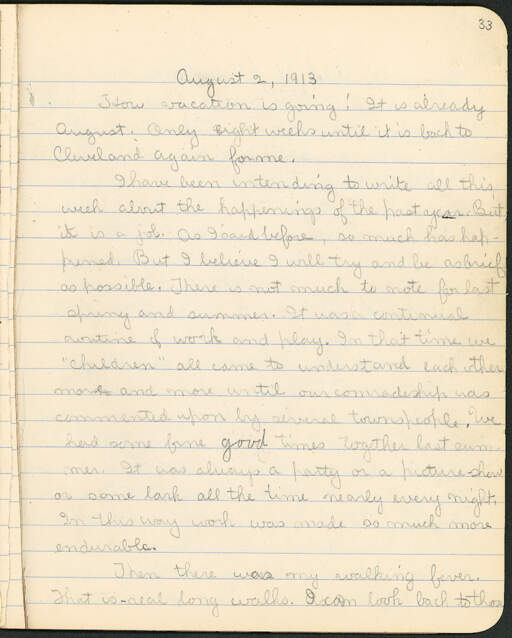 33
August 2, 1913
How vacation is going! It is already
August. Only eight weeks until it is back to
Cleveland again for me.
I have been intending to write all this
week about the happenings of the past year. But
it is a job. As I said before, so much has hap-
pened. But I believe I will try and be as brief
as possible. There is not much to note for last
spring and summer. It was a continual
routine of work and play. In that time we
"children" all came to understand each other
more and more until our comradeship was
commented upon by several townspeople. We
had some fine good times together last sum-
mer. It was always a party or a picture show
or some lark all the time nearly every night.
In this way work was made so much more
endurable.
Then there was my walking fever.
That is - real long walks. I can look back to those